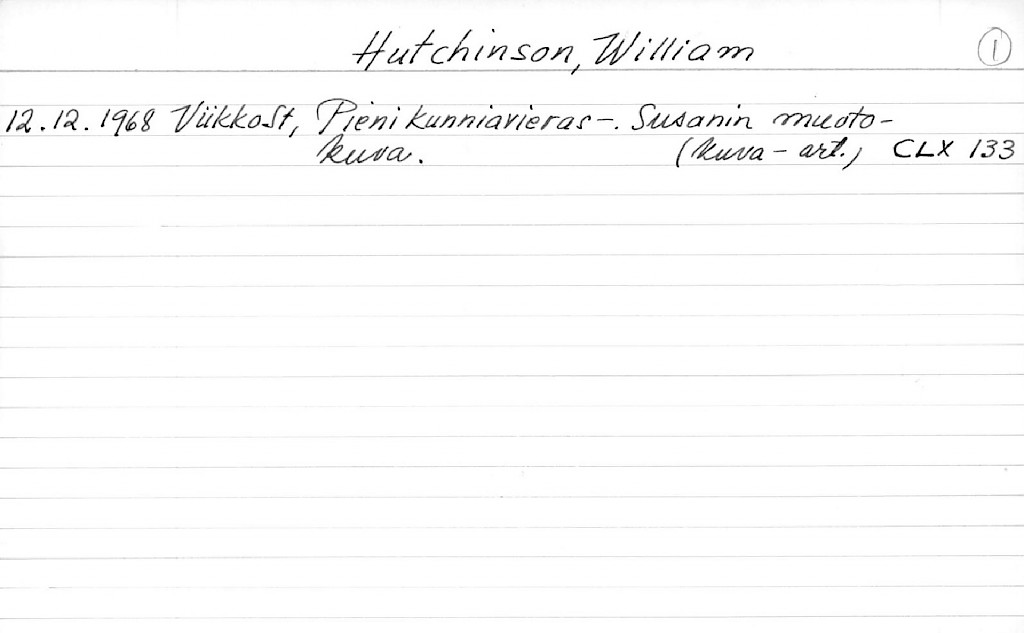 Hutchinson, William
1
12.12.1968 ViikkoSt, Pieni kunniavieras-. Susanin muoto-
kuva. (kuva-art.) CLX 133